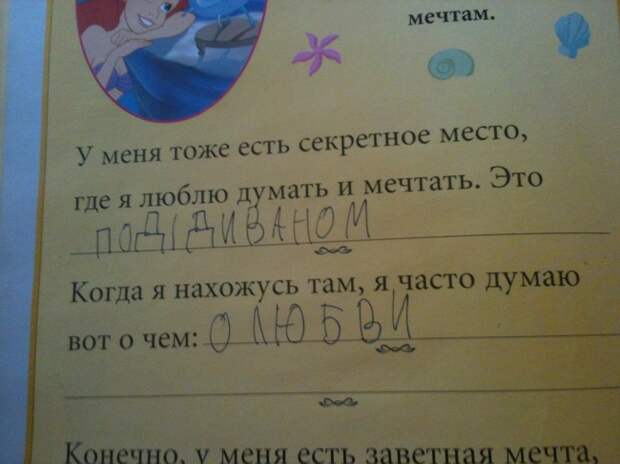 мечтам.
У меня тоже есть секретное место,
где я люблю думать и мечтать. Это
ПОД|ДИВАНОМ
Когда я нахожусь там, я часто думаю
вот о чем: О ЛЮБВИ
Конечно, у меня есть заветная мечта,